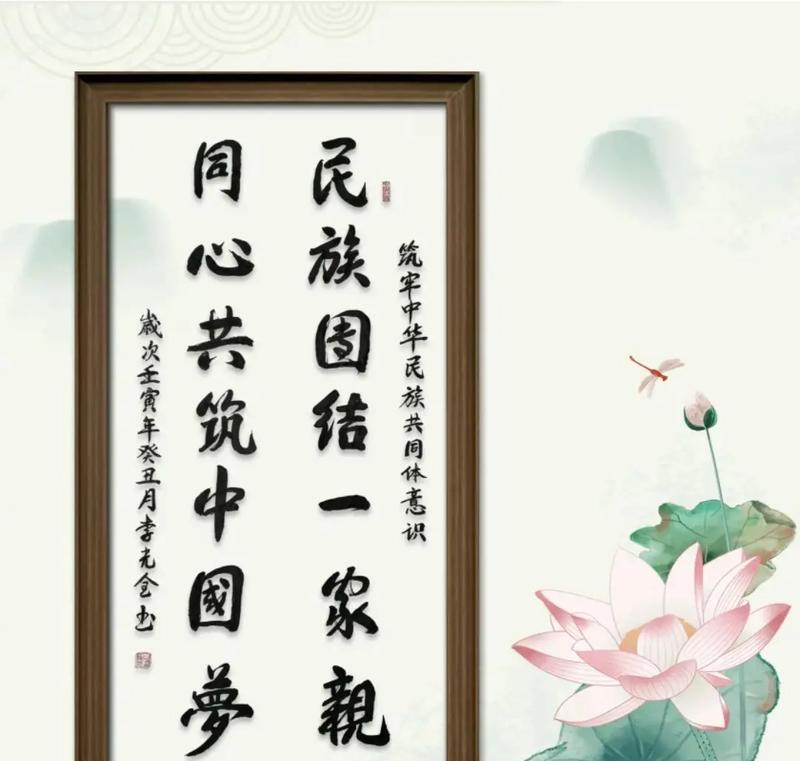 筑牢中华民族共同体意识
民族团结一家親
同心共筑中國夢
歳次壬寅年癸丑月李光全书